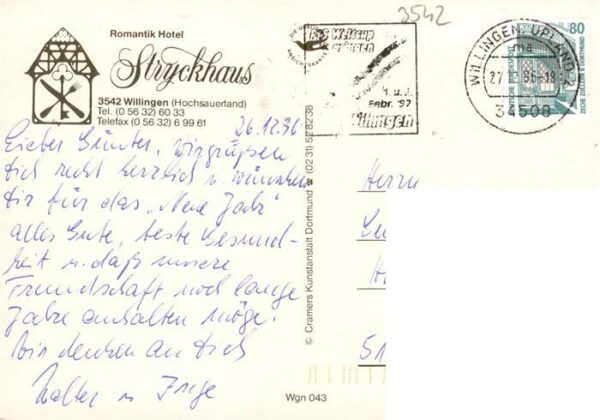 3542
Romantik Hotel
Stryckhaus
3542 Willingen (Hochsauerland)
Tel. (0 56 32) 60 33
Telefax (0 56 32) 6 99 61
26.12.96
Lieber Günter, wir grüßen
Dich recht herzlich u. wünschen
Dir für das „Neue Jahr"
alles Gute, beste Gesund-
heit u. daß unsere
Freundschaft noch lange
Jahre anhalten möge.
Wir denken an Dich
Walter u Inge
© Cramers Kunstanstalt Dortmund (02 31) 52 82 38
Wgn 043
Weltcup
Willingen
Febr. '97
Willingen
WILLINGEN, UPLAND
ma
27.12.96-18
34508
80
DEUTSCHE BUNDESPOST
ZECHE ZOLLERN II DORTMUND
Herrn